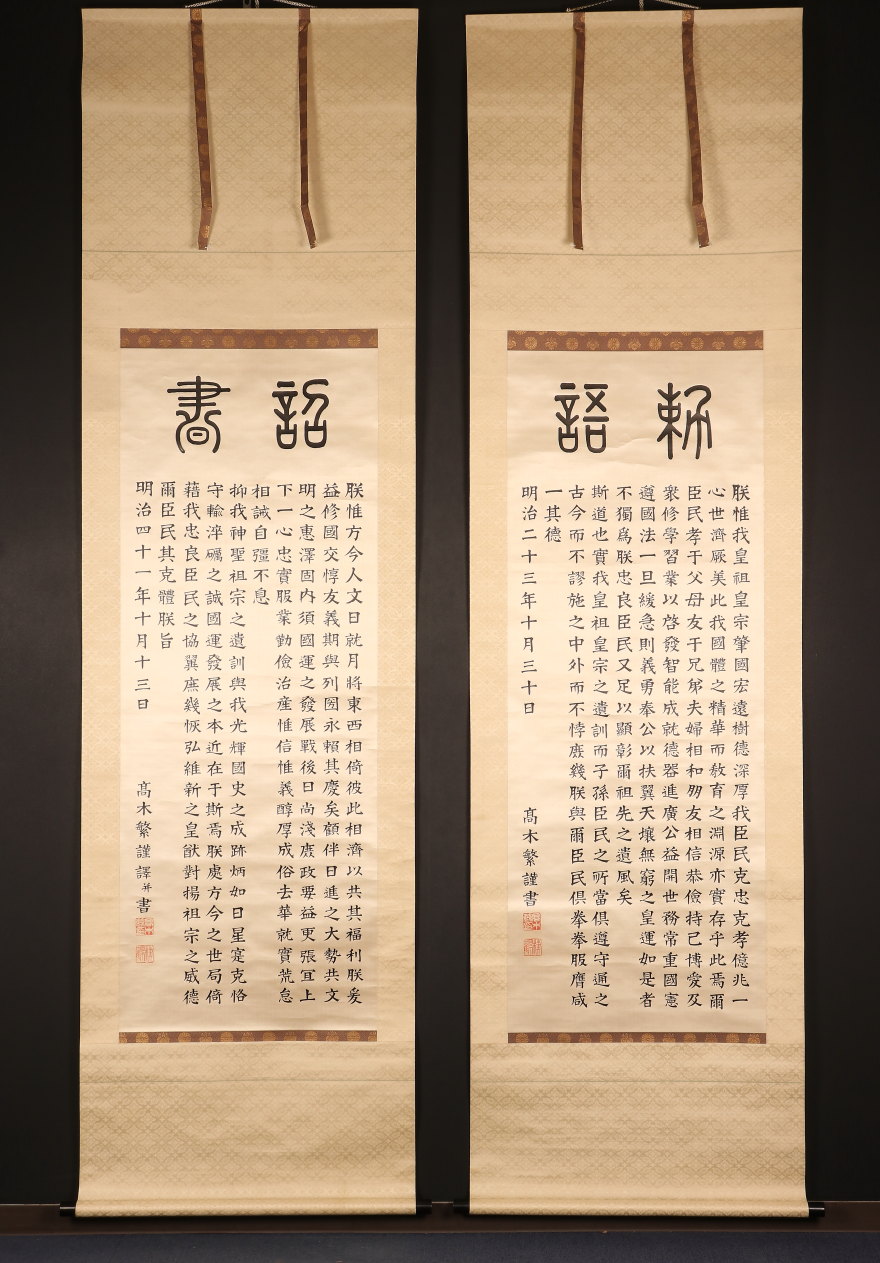 勅語
朕惟我皇祖皇宗肇國宏遠樹德深厚我臣民克忠克孝億兆一
心世濟厥美此我國體之精華而敎育之淵源亦實存乎此焉爾
臣民孝于父母友于兄弟夫婦相和朋友相信恭儉持己博愛及
衆修學習業以啓發智能成就德器進廣公益開世務常重國憲
遵國法一旦緩急則義勇奉公以扶翼天壤無窮之皇運如是者
不獨爲朕忠良臣民又足以顯彰爾祖先之遺風矣
斯道也實我皇祖皇宗之遺訓而子孫臣民之所當俱遵守通之
古今而不謬施之中外而不悖庶幾朕與爾臣民俱拳拳服膺咸
一其德
明治二十三年十月三十日　髙木繁謹書
詔書
朕惟方今人文日就月將東西相倚彼此相濟以共其福利朕爰
益修國交惇友義期與列國永賴其慶矣顧伴日進之大勢共文
明之惠澤固內須國運之發展戰後日尚淺庶政要益更張宜上
下一心忠實服業勤儉治產惟信惟義醇厚成俗去華就實荒怠
相誡自彊不息
抑我神聖祖宗之遺訓與我光輝國史之成跡炳如日星寔克恪
守輸淬礪之誠國運發展之本近在于斯焉朕處方今之世局倚
藉我忠良臣民之協翼庶幾恢弘維新之皇猷對揚祖宗之威德
爾臣民其克體朕旨
明治四十一年十月十三日　髙木繁謹譯并書